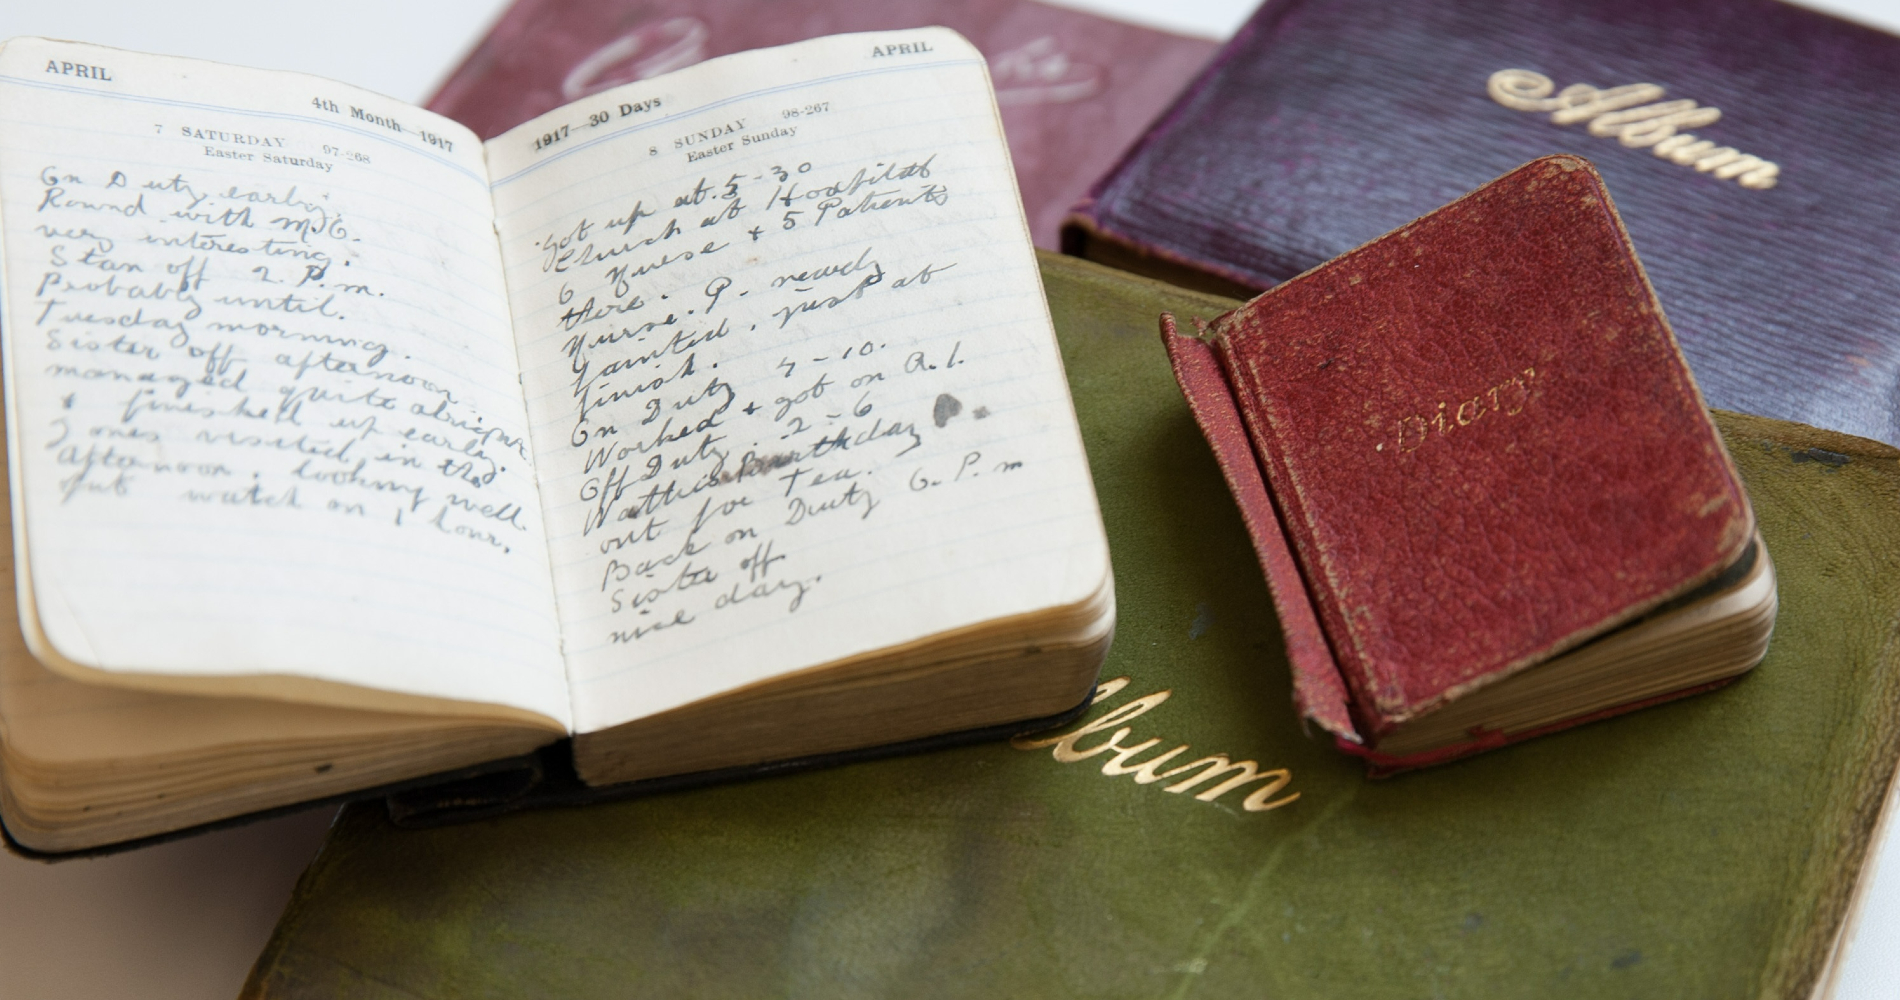 APRIL
4th Month 1917
7 SATURDAY 97-268
Easter Saturday
On Duty early
Round with M.O.
very interesting.
Stan off 2. P.m.
Probably until.
Tuesday morning.
Sister off afternoon
managed quite alright
& finished up early.
Jones visited in the
afternoon. looking well.
put watch on 1 hour.
APRIL
1917 30 Days
8 SUNDAY 98-267
Easter Sunday
got up at 5-30
Church at Hospital
6 Nurse + 5 Patients
there. P. nearly
Nurse.
fainted. just at
finish.
On Duty 4-10.
Worked + got on A.1.
Off Duty. 2-6
Birthday
out for Tea.
Back on Duty 6. P.m
Sister off
nice day.
Album
Diary
lbum